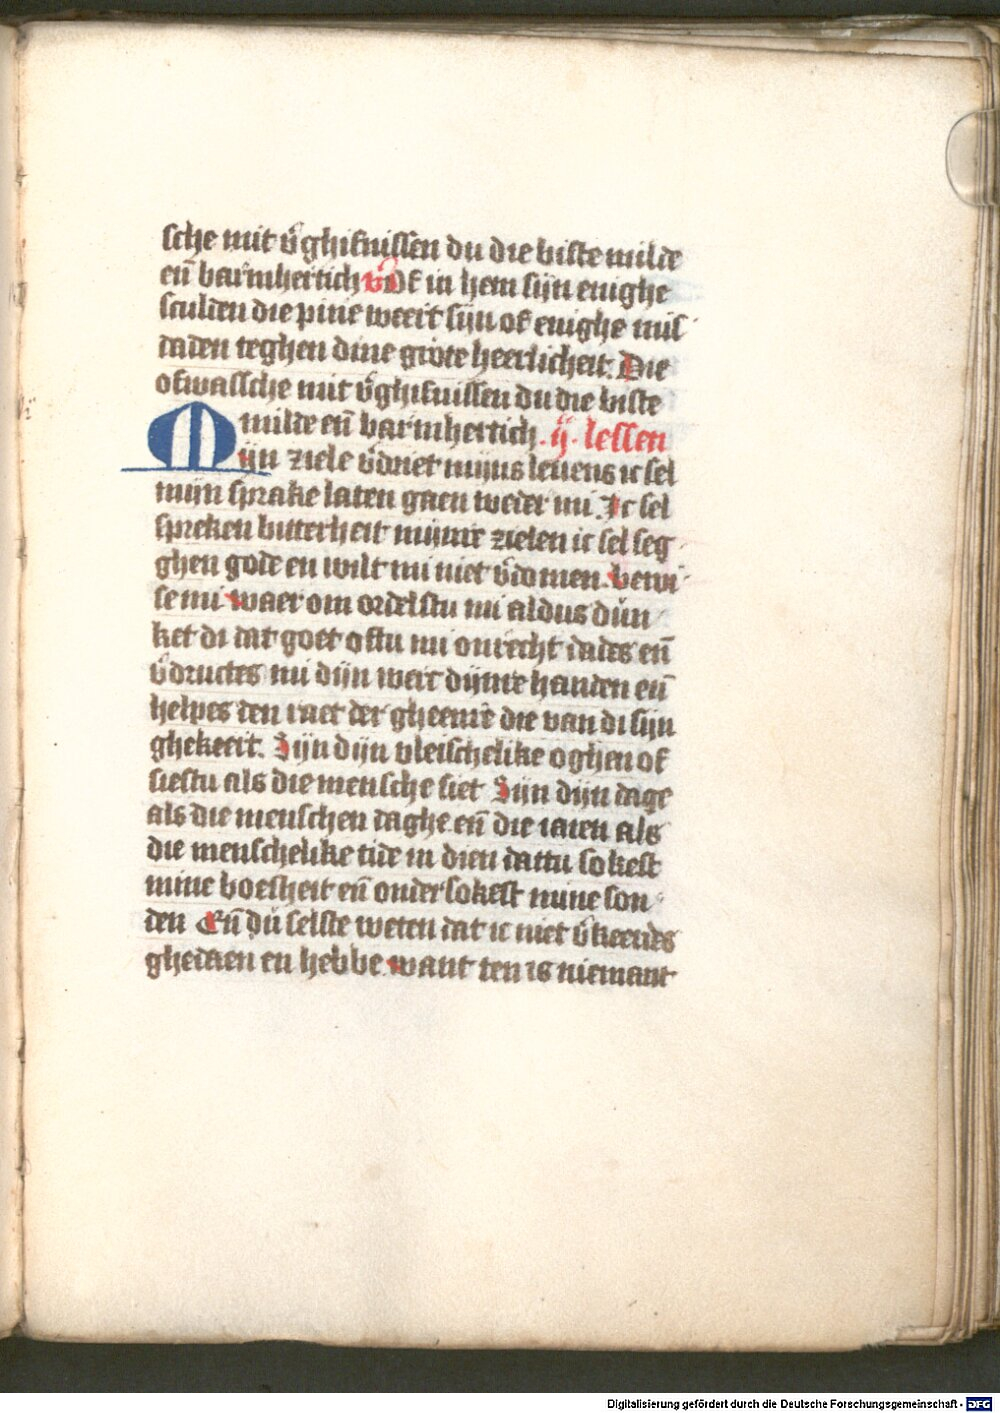 sche mit v̄ghifnissen du die biste milde
en̄ barmhertich v̄ Of in hem sijn enighe
sculden die pine weert sijn of enighe mis
daden teghen dine grote heerlicheit. Die
ofwassche mit v̄ghifnissen du die biste
milde en̄ barmhertich. ij. lessen
Mijn ziele v̄driet mijns leuens ic sel
mijn sprake laten gaen weder mi. Ic sel
spreken bitterheit mijnre zielen ic sel seg
ghen gode en wilt mi niet v̄domen. bewi
se mi waer om ordelstu mi aldus dun
ket di dat goet ofstu mi onrecht dades en̄
v̄dructes mi dijn werc dijnre handen en̄
helpes den raet der gheenre die van di sijn
ghekeert. Sijn dijn vleischelike oghen of
siestu als die mensche siet Sijn dijn dage
als die menschen daghe en̄ die iaren als
die menschelike tide in dien dattu sokest
mine boesheit en̄ ondersokest mine son
den En̄ du selste weten dat ic niet v̄keerdes
ghedaen en hebbe want ten is niemant
Digitalisierung gefördert durch die Deutsche Forschungsgemeinschaft - DFG